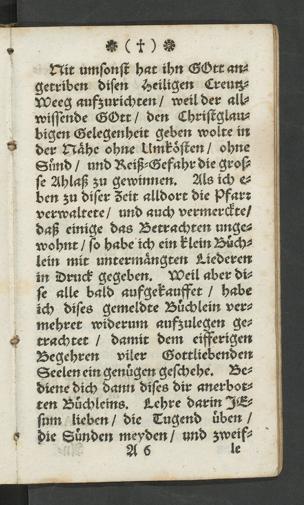 ❋ ( † ) ❋
Nit umsonst hat ihn GOtt an⸗
getriben disen Heiligen Creutz⸗
Weeg aufzurichten / weil der all⸗
wissende GOtt / den Christglau⸗
bigen Gelegenheit geben wolte in
der Nähe ohne Umkösten / ohne
Sünd / und Reiß⸗Gefahr die gros⸗
se Ablaß zu gewinnen. Als ich e⸗
ben zu diser Zeit alldort die Pfarr
verwaltete / und auch vermerckte /
daß einige das Betrachten unge⸗
wohnt / so habe ich ein klein Büch⸗
lein mit untermängten Liederen
in Druck gegeben. Weil aber di⸗
se alle bald aufgekauffet / habe
ich dises gemeldte Büchlein ver⸗
mehret widerum aufzulegen ge⸗
trachtet / damit dem eifferigen
Begehren viler Gottliebenden
Seelen ein genügen geschehe. Be⸗
diene dich dann dises dir anerbot⸗
ten Büchleins. Lehre darin JE⸗
sum lieben / die Tugend üben /
die Sünden meyden / und zweif⸗
A 6 le